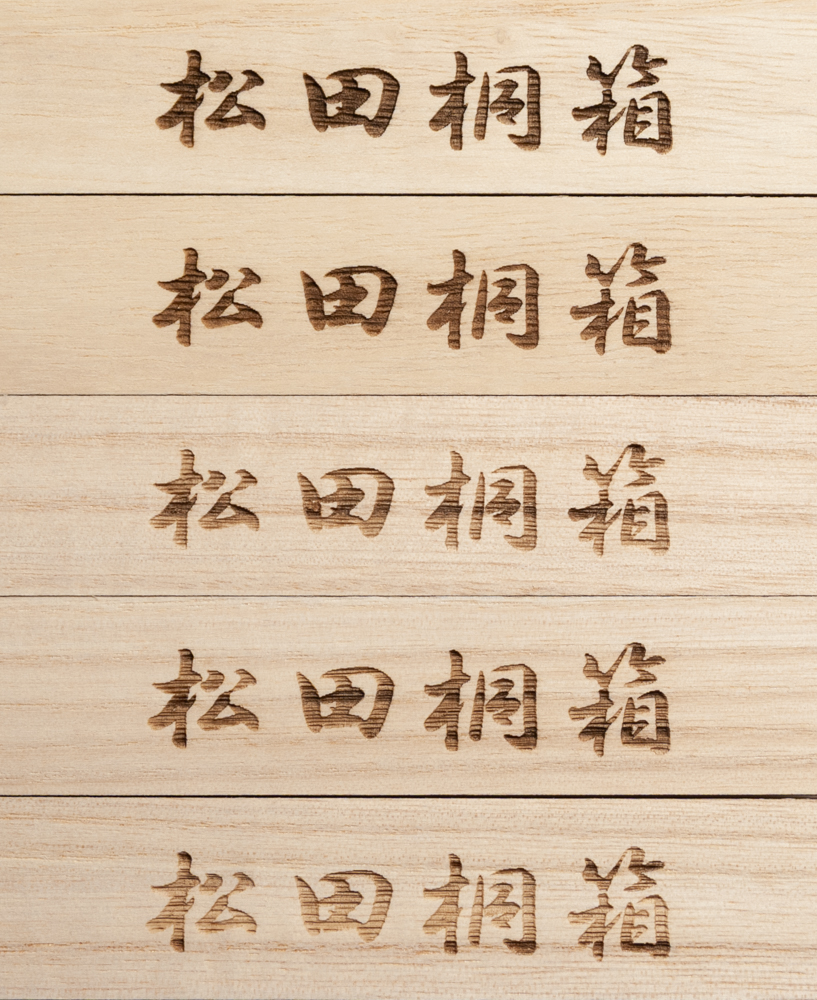 松田桐箱
松田桐箱
松田桐箱
松田桐箱
松田桐箱